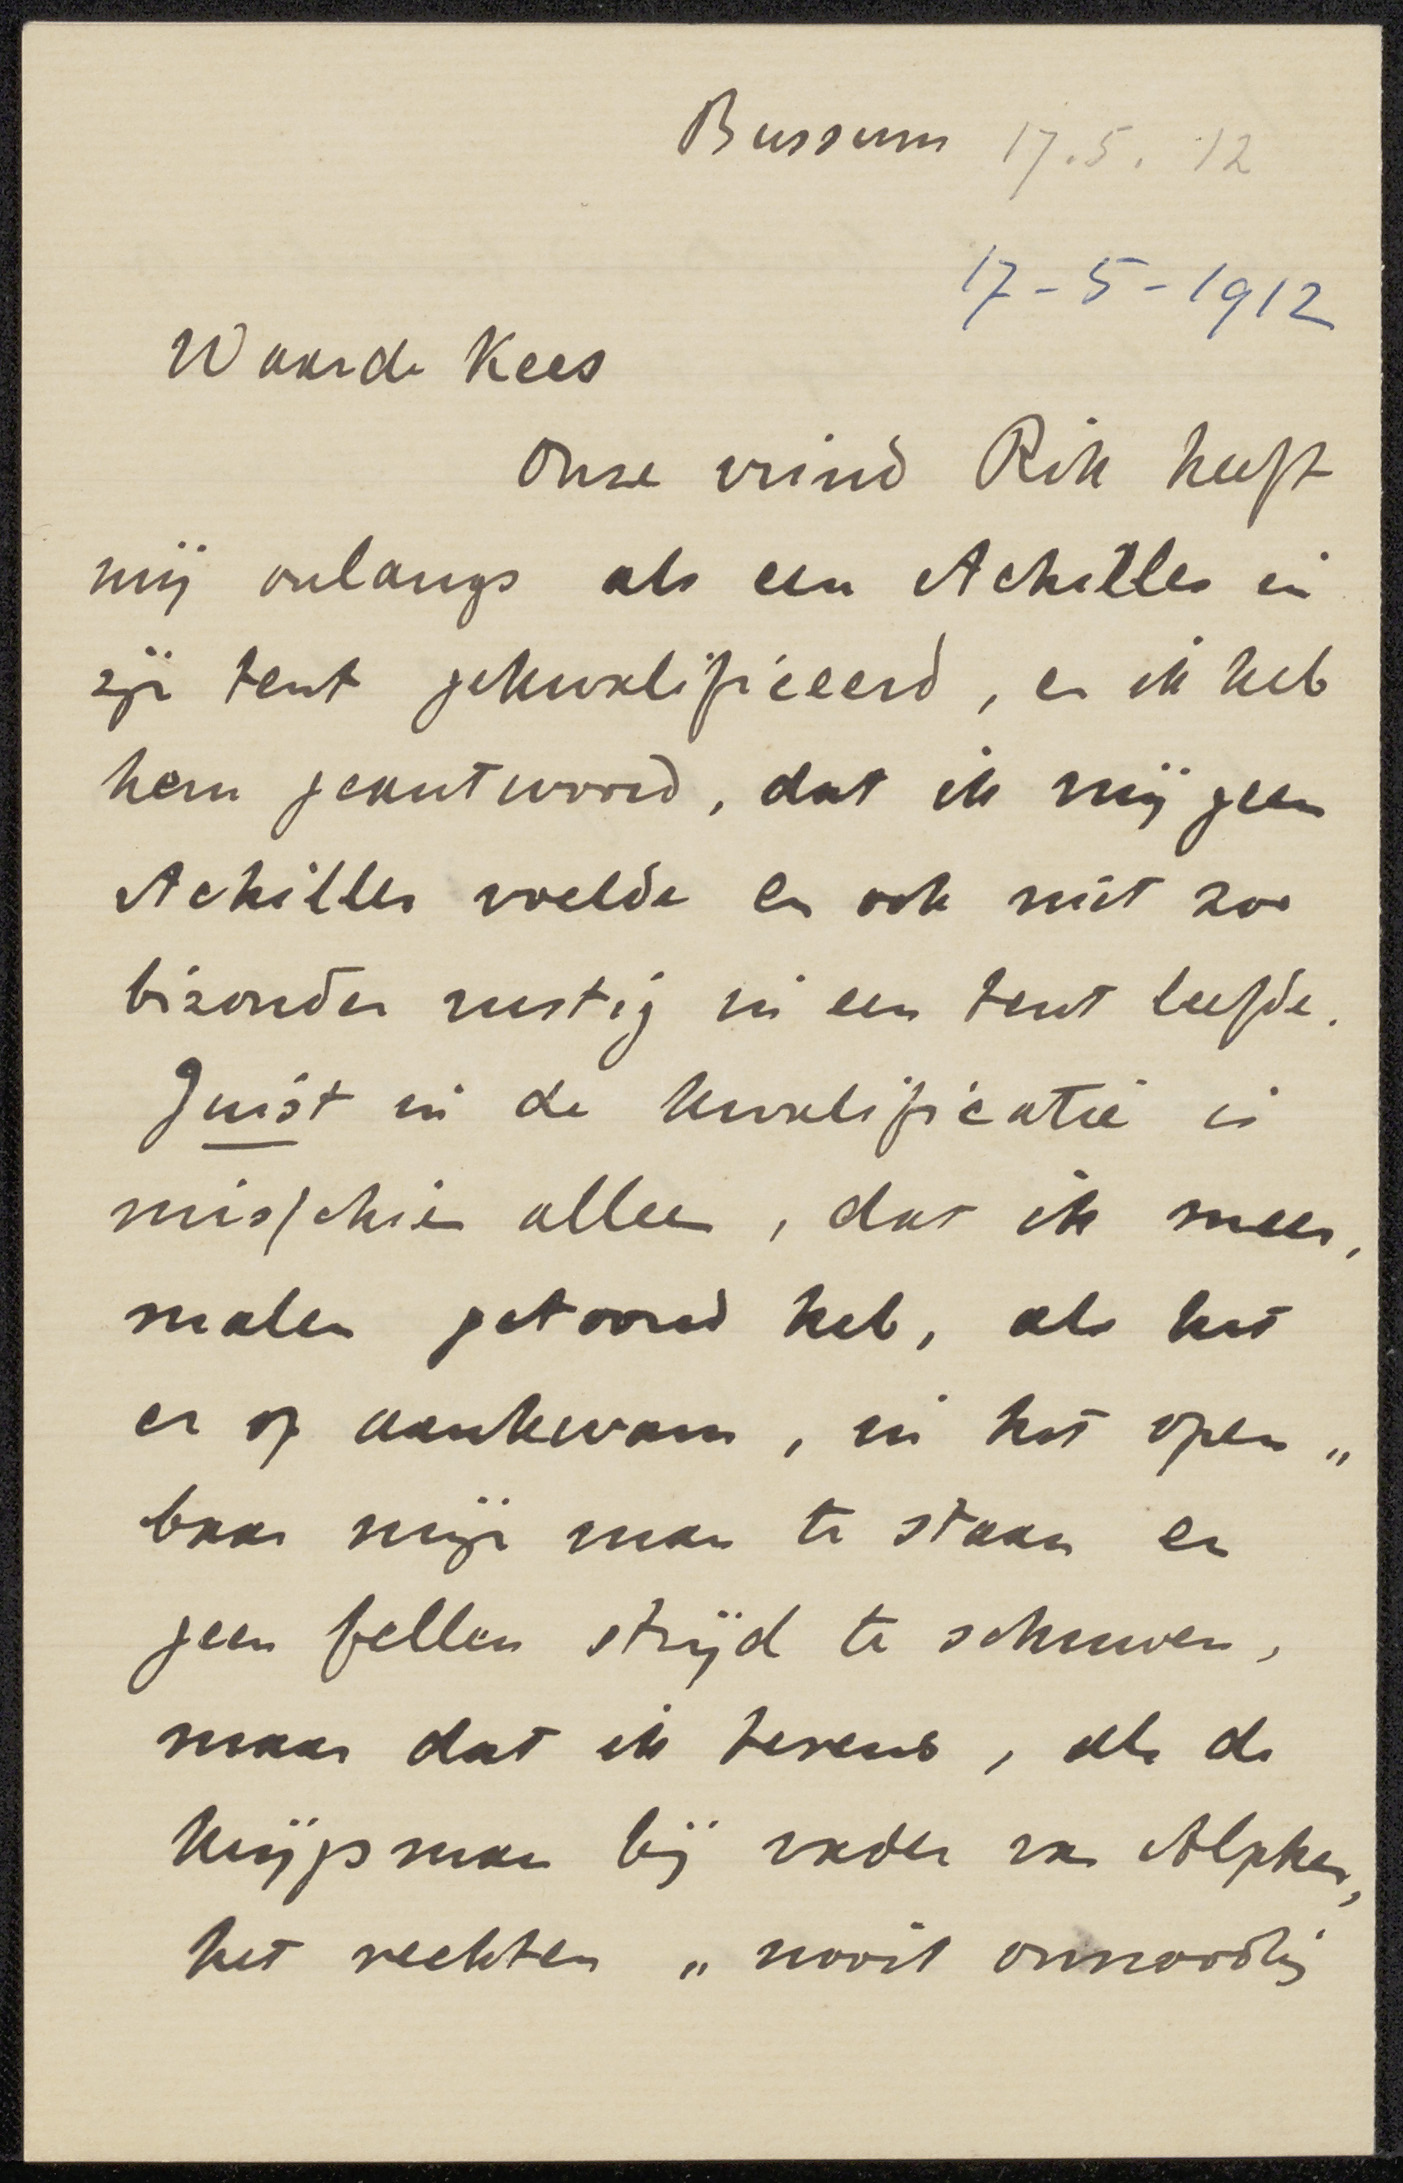 Bussum 17.5.12
17-5-1912
Waarde Kees
Onze vriend Rik heeft
mij onlangs als een Achilles in
zijn tent gekwalificeerd, en ik heb
hem geantwoord, dat ik mij geen
Achilles voelde en ook niet zoo
bizonder rustig in een tent leefde.
Juist in de kwalificatie is
misschien alleen, dat ik meer,
malen getoond heb, als het
er op aankwam, in het open„
baar mijn man te staan en
geen fellen strijd te schuwen,
maar dat ik tevens, als de
krijgsman bij vader van Alphen,
het vechten „nooit onnoodig